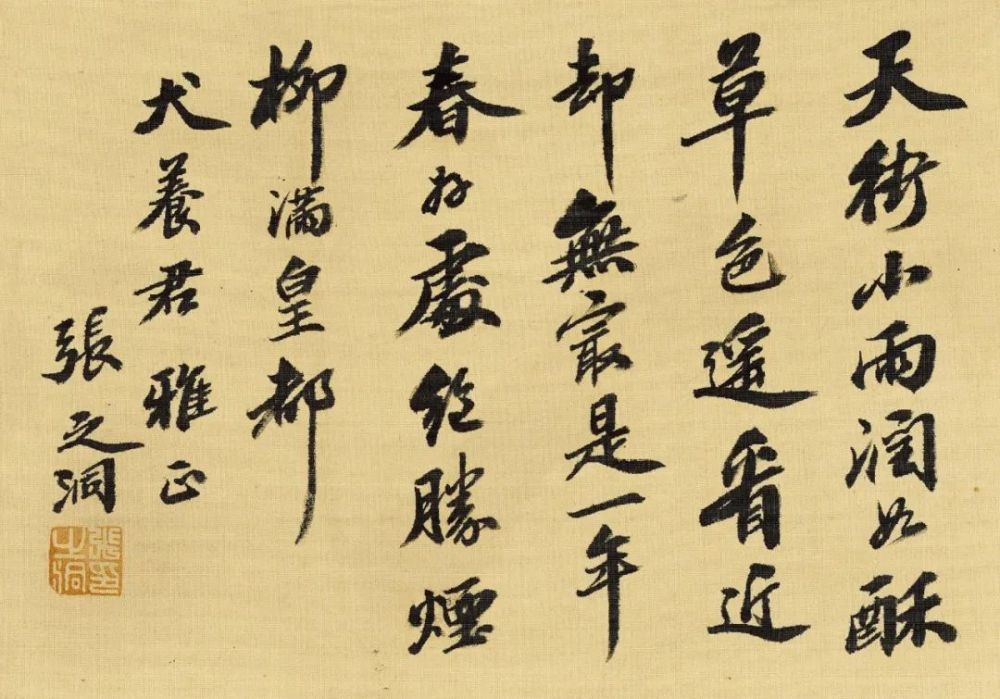 天街小雨潤如酥
草色遥看近
却無最是一年
春好處絕勝煙
柳滿皇都
犬養君雅正
張之洞
張印之洞